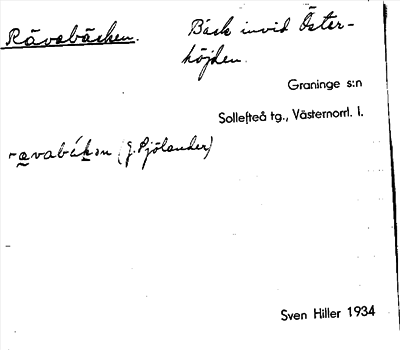 Rävabäcken. Bäck invid Öster-
höjden.
Graninge s:n
Sollefteå tg., Västernorrl. l.
(J. Sjölander)
Sven Hiller 1934